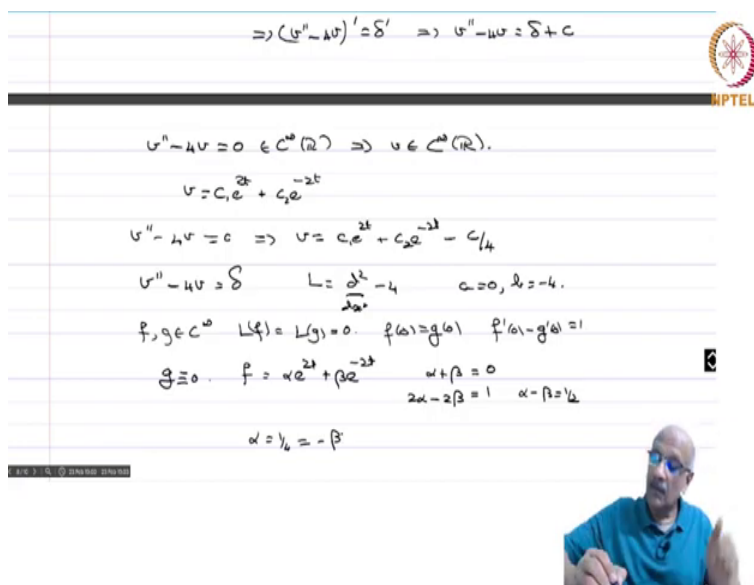 ⇒ (v″ - 4v)′ = δ′ ⇒ v″ - 4v = δ + c
NPTEL
v″ - 4v = 0 ∈ C^∞(ℝ) ⇒ v ∈ C^∞(ℝ).
v = c₁e^{2t} + c₂e^{-2t}
v″ - 4v = c ⇒ v = c₁e^{2t} + c₂e^{-2t} - c/4
v″ - 4v = δ L = d²/dx² - 4 a=0, b=-4.
f, g ∈ C^∞ L(f) = L(g) = 0. f(0) = g(0) f′(0) - g′(0) = 1
g ≡ 0. f = αe^{2t} + βe^{-2t} α + β = 0
2α - 2β = 1 α - β = 1/2
α = 1/4 = -β